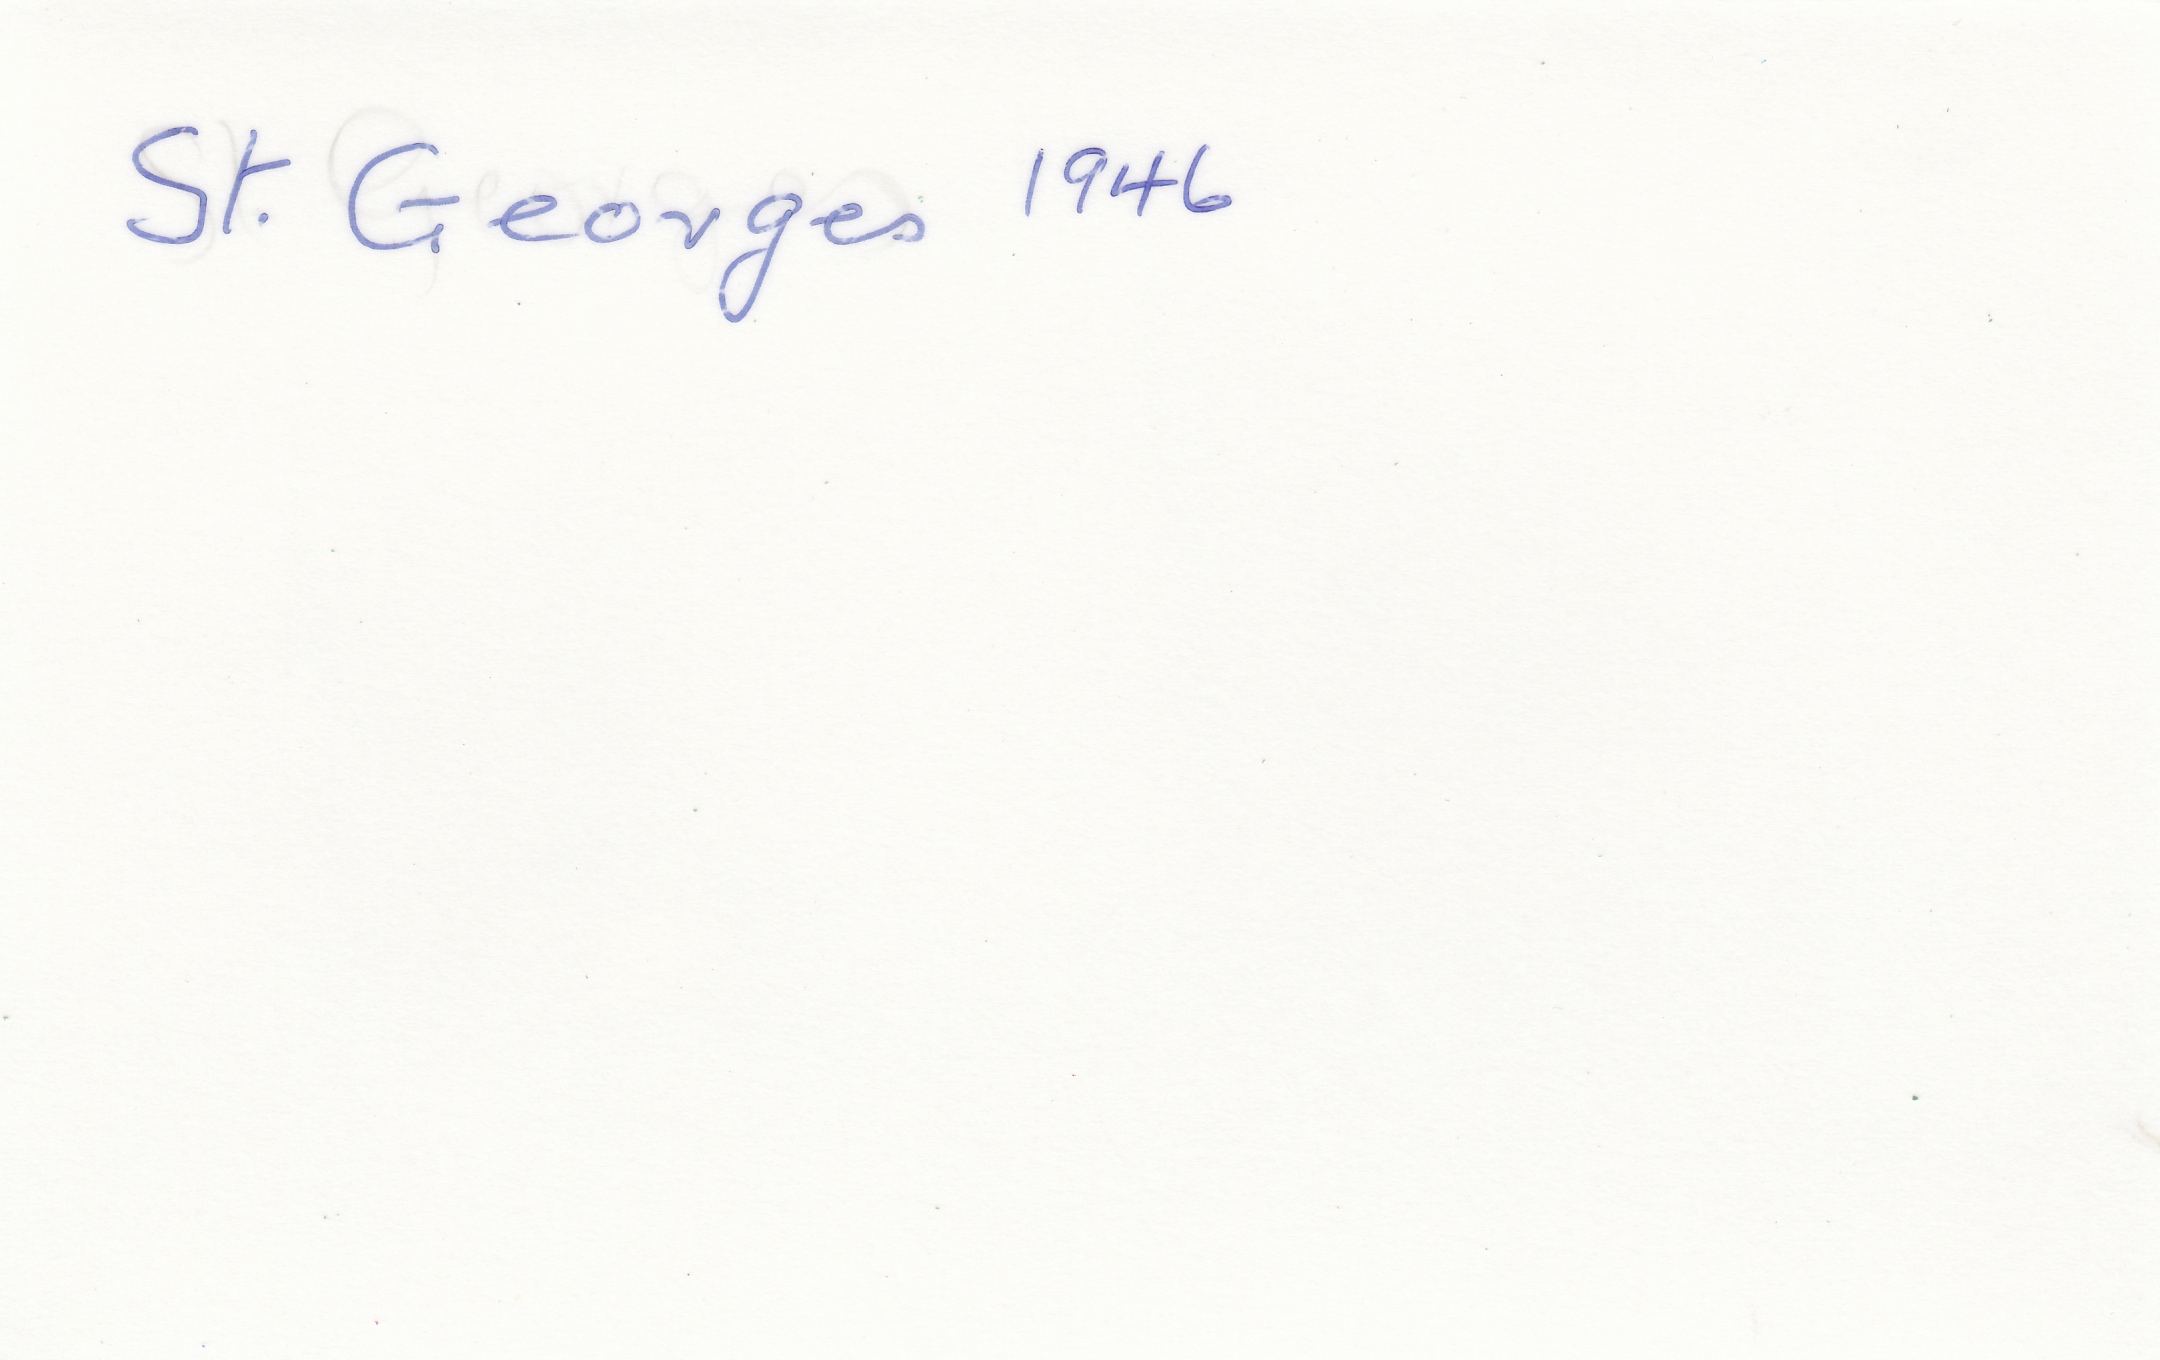 St. Georges 1946